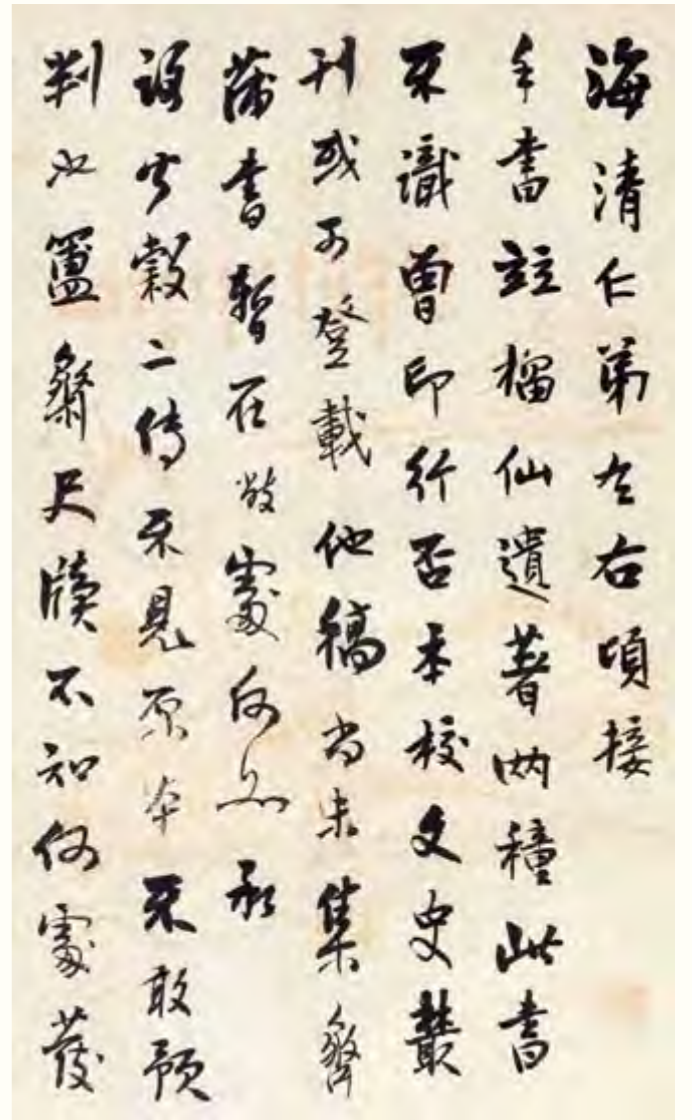 海清仁弟左右頃接
手書竝榴仙遺著兩種此書
未識曾印行否本校文史叢
刊或可登載他稿尚未集齊
蒲書暫在敝處何如承
公穀二傳未見原本未敢預
判也簠齋尺牘不知何處發